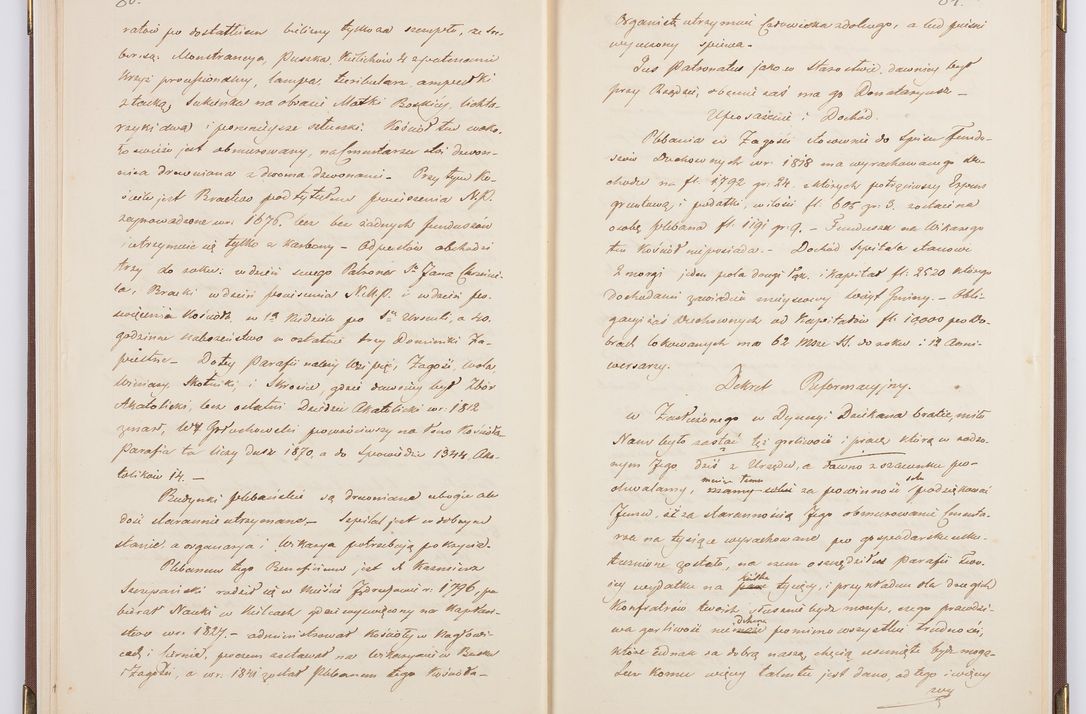 ratów po dostatkiem bielizny tylko za szczupło, ze sre
bra są: Monstrancya, puszka, Kielichów 4 z patenami
Krzyż processionalny, lampa, turibulum ampułki
z tacką, Sukienka na obrazie Matki Boskiey, lichta
rzyki dwa i pomnieysze sztuczki. Kościół ten wako-
ło świeżo jest obmurowany, na Cmentarzu stoi dzwon-
nica drewniana z dwoma dzwonami – Przy tym Ko-
ściele jest Bractwo pod tytułem pocieszenia N.P.
zaprowadzone w r. 1676. lecz bez żadnych funduszów
i utrzymuie się tylko z karbony – Odpustów obchodzi
trzy do roku: w dzień swego Patrona Sgo Jana Chrzcicie
la, Bracki w dzień pocieszenia N.M.P. i w dzień po-
święcenia Kościoła, w 1ą Niedzielę po Sey Urszuli, a 40.
godzinne nabożeństwo w ostatnie trzy Dominiki Za-
pustne – Do tey Parafii należą wsi pięć, Zagość, wola,
Winiary, Skotniki, i Skrocin, gdzie dawniey był Zbór
Akatolicki, lecz ostatni Dziedzic Akatolicki w r: 1812
zmarł, W. Grłuchowski powróciwszy na łono Kościoła
Parafia ta liczy dusz 1870, a do Spowiedzi 1344. Aka-
tolików 14. –
Budynki plebańskie są drewniane ubogie ale
dość starannie utrzymane – Szpital jest w dobrym
stanie, a organarya i Wikarya potrzebują pokrycia –
Plebanem tego Beneficium jest X Kazimierz
Szczepański rodził się w mieście Jędrzejowie r: 1796, po
bierał Nauki w Kielcach gdzie wyświęcony na Kapłań-
stwo w r: 1827. – administrował Kościoły w Nagłowi-
cach i Cernie, poczem zostawał na Wikaryach w Busku
i Zagości, a w r. 1841 został Plebanem tego Kościoła –
Organistę utrzymuie Człowieka zdolnego, a lud pieśni
wyuczony śpiewa –
Jus Patronatus jako w Starostwie, dawniey był
przy Rządzie, obecnie zaś ma go Donataryusz –
Uposażenie i Dochód.
Plebania w Zagości stosownie do Spisu Fundu-
szów Duchownych w r: 1818 ma wyrachowanego do-
chodu na fl. 1792 gr: 24. z których potrąciwszy Expens
gruntową i podatki, w ilości fl. 605 gr: 3. zostaie na
osobę Plebana fl. 1191 gr: 9. – Funduszu na Wikarego
ten Kościół nieposiada. – Dochód Szpitala stanowi
2 morgi jeden pola drugi łąk i Kapitał fl. 2520 którego
dochodami zawiaduie mieyscowy Wóyt Gminy. – Obli-
gacyi zaś Duchownych od Kapitałów fl. 10000 po Do-
brach lokowanych ma 62 Msze St. do roku i 12 Anni-
wersarzy.
Dekret Reformacyjny.
w Zasłużonego w Dyecezyi Dziekana bracie, miło
Nam było zostać tę gorliwość i pracę którą w rodzo-
nym Jego dziś z Urzędu, a dawno z szacunku po-
chwalamy, mamy sobie za powinność podziękować
Jemu, iż za starannością Jego obmurowanie Cmenta-
rza na tysiące wyrachowane po gospodarsku usku-
tecznione zostało, na czem oszczędziłeś Parafii Two-
iey wydatku na kilka tysięcy, i przykładem dla drugich
Konfratrów twoich służenie bydź mogło, czego prawdzi-
wa gorliwość pomimo wszystkie trudności,
które Jednak za dobrą naszą chęcią usunięte bydź mogą
Lecz komu więcey talentu jest dano, od tego i więcey